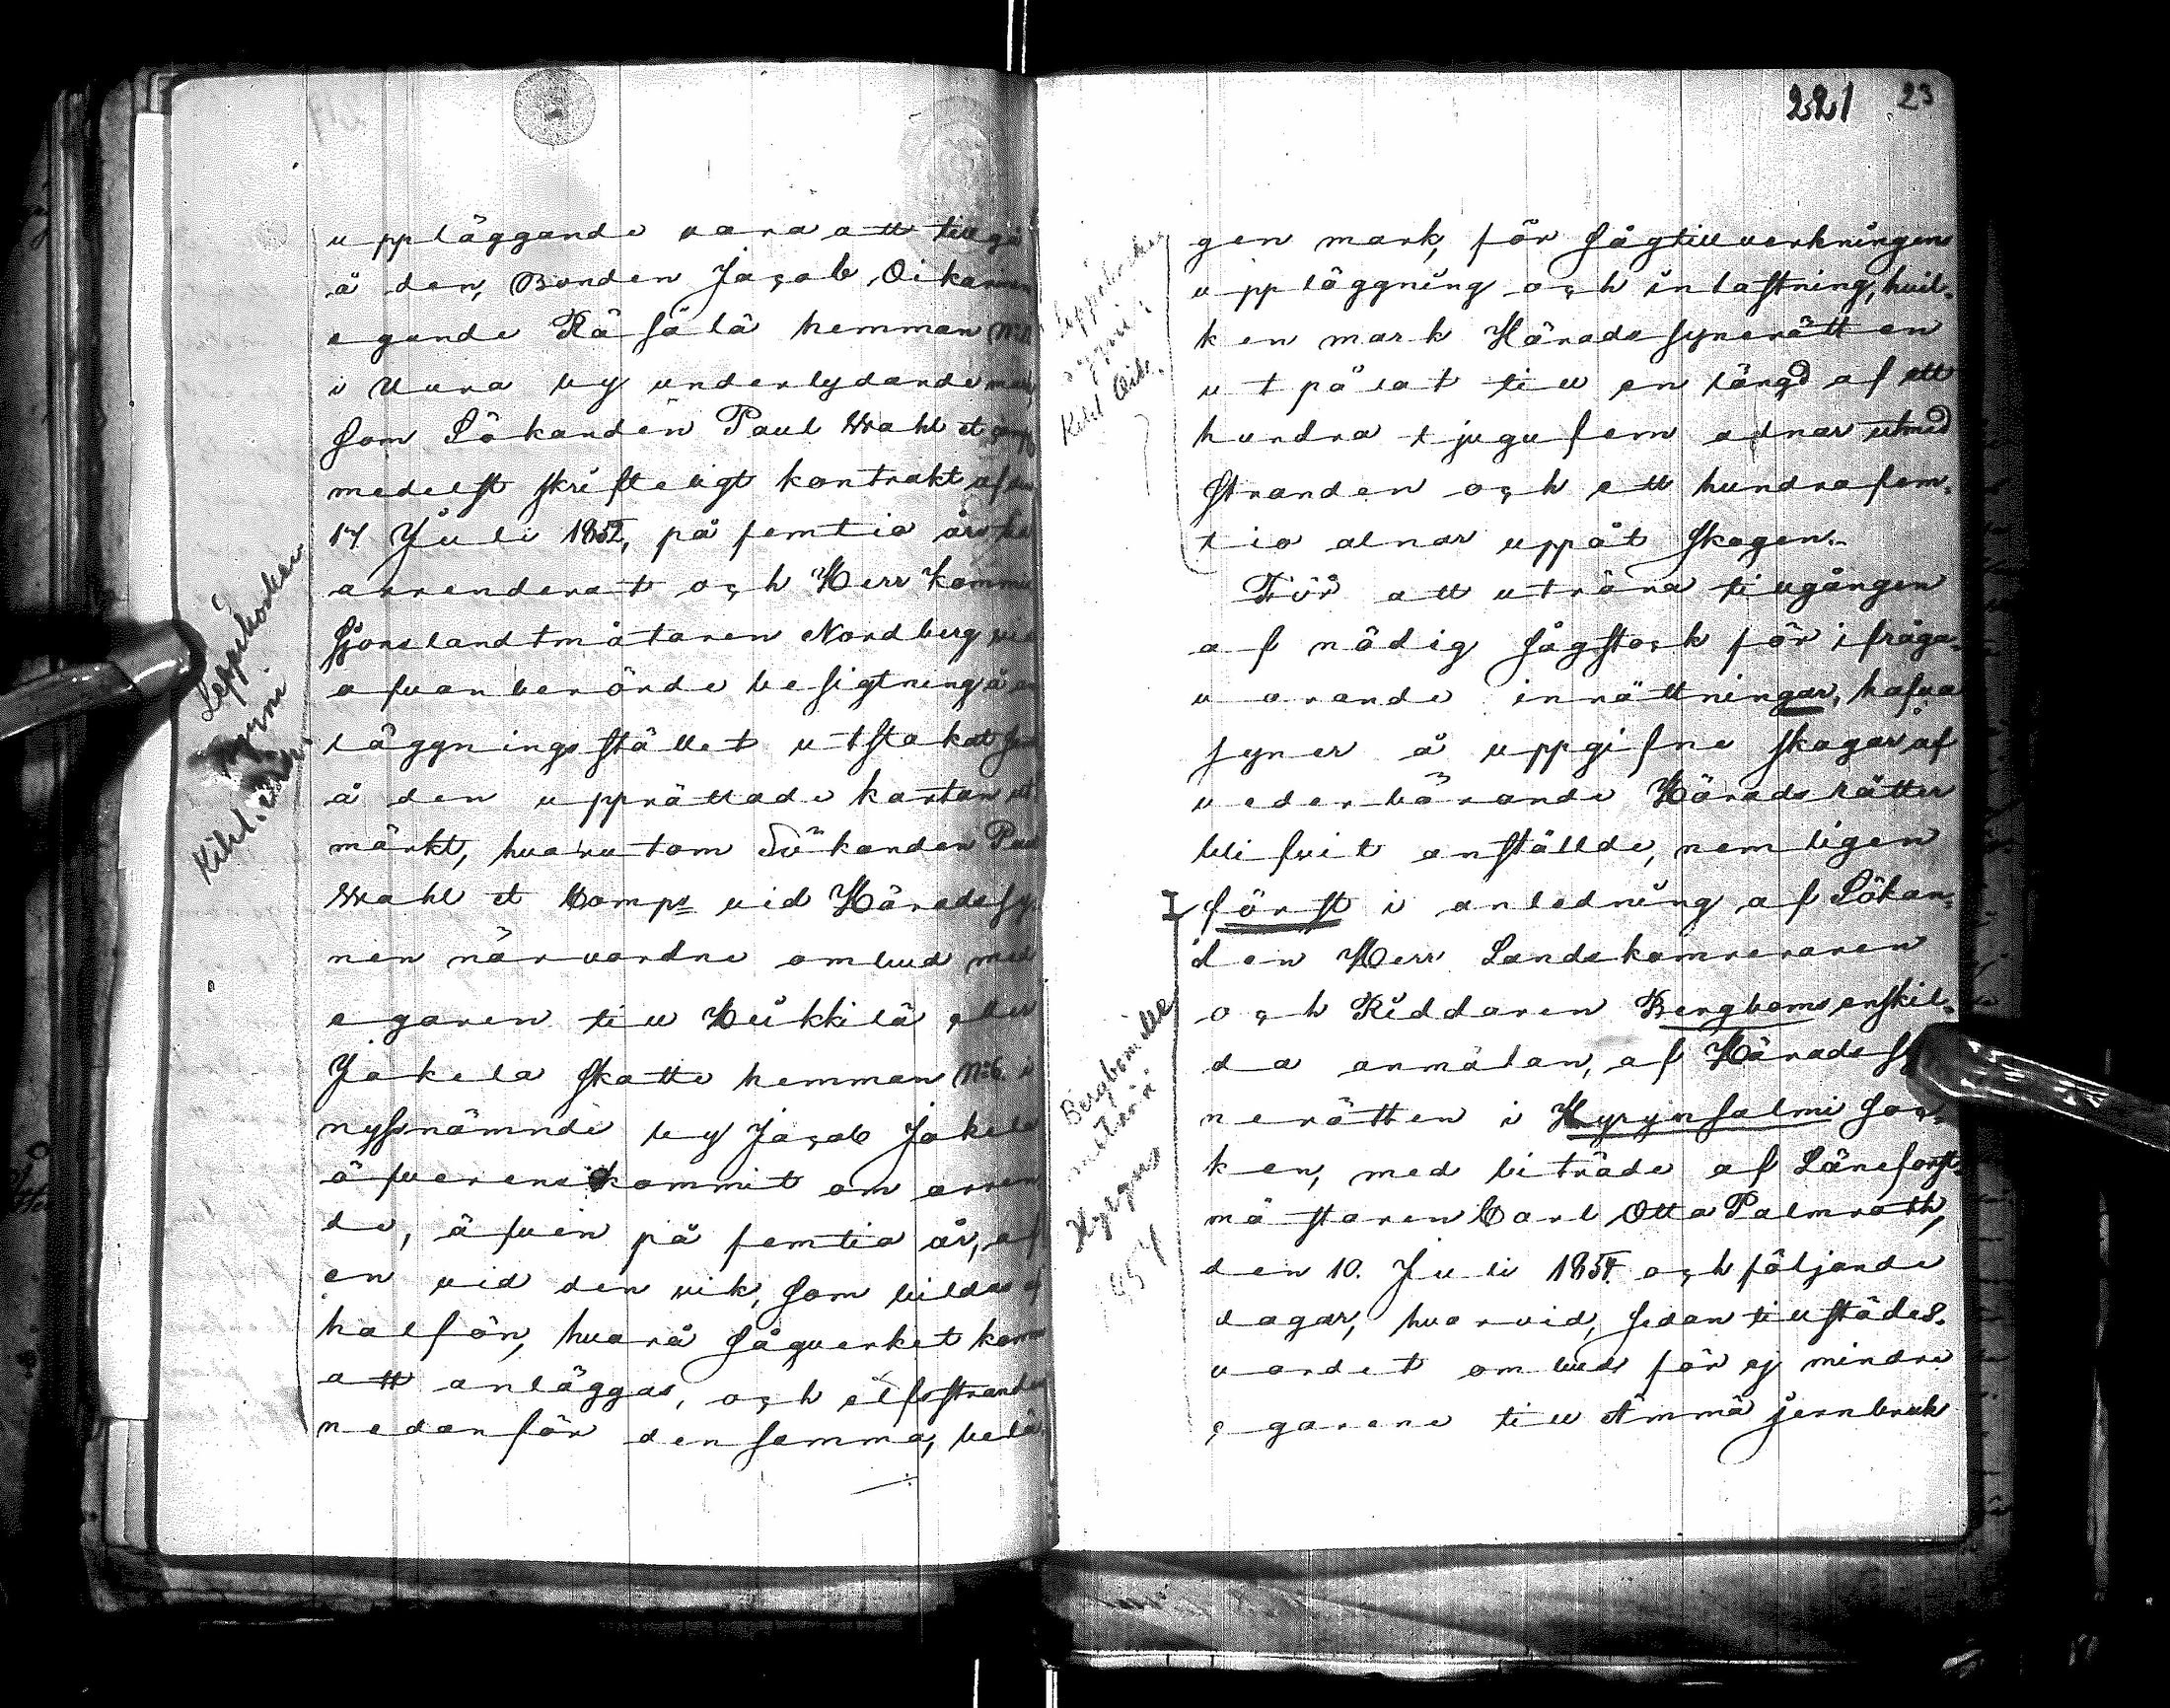 uppläggande vara att tillgå
å den, Bonden Jacob Oikarinen
egande Räsälä hemman
i Uura by underlydande mark,
som Sökanden Paul Wahl et Comp
medelst skrifteligt kontrakt af den
17 Juli 1852, på femtio års tid
arrenderat och Herr Kommis
sjonslandtmätaren Nordberg vid
ofvanberörde besigtning å an
läggningsstället utstakat samt
å den upprättade kartan ut
märkt, hvarutom Sökanden Paul
Wahl et Komps vid Häradssy
nen närvardne ombud med
egaren till Heikkilä eller
Jakela skatte hemman N:6 i
nyssnämnde by Jacob Jakela
öfverenskommit om arren
de, äfven på femtio år, af
en vid den vik, som bildas af
halfön, hvarå sågverket kommer
att anläggas, och elfsstranden
nedanför densamma, belä
Leppikosken
myyni
221 23
gen mark, för sågtillverkningens
uppläggning och inlastning, hvil-
ken mark Häradssynerätten
utpålat till en längd af ett
hundra tjugufem alnar utmed
stranden och ett hundrafem-
tio alnar uppåt skogen.
För att utröna tillgången
af nödig sågstock för ifråga-
varande inrättningar, hafva
syner å uppgifne skogar af
vederbörande Häradsrätter
blifvit anställde, nemligen
först i anledning af Sökan-
den Herr Landskamreraren
och Riddaren Bergboms enskil-
da anmälan, af Häradssy
nerätten i Hyrynsalmi Soc-
ken, med biträde af Läneforst-
mästaren Carl Otto Palmroth,
den 10. Juli 1854 och följande
dagar, hvarvid, sedan tillstädes-
vardet ombud för ej mindre
egarene till Ämmä jernbruk
Bergbomille